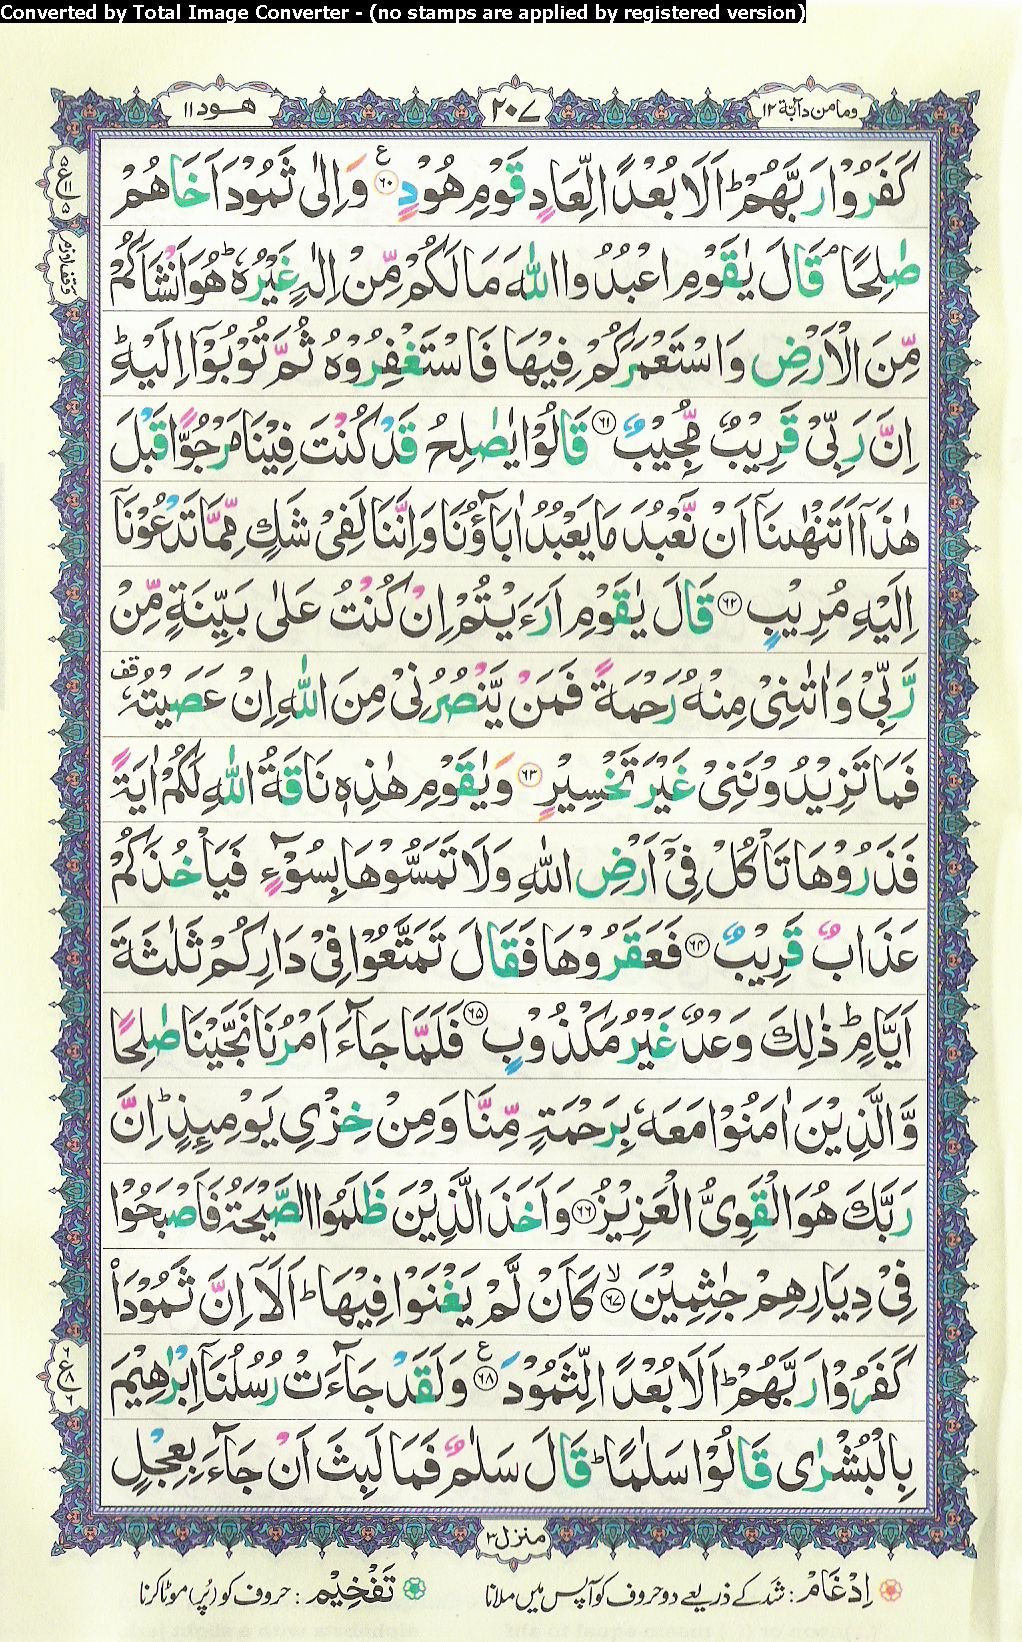 Converted by Total Image Converter - (no stamps are applied by registered version)
وما من دآبّة ١٢
٢٠٧
هود ١١
كَفَرُوْا رَبَّهُمْ ؕ اَلَا بُعْدًا لِّعَادٍ قَوْمِ هُوْدٍ ﴿۶۰﴾ وَ اِلٰى ثَمُوْدَ اَخَاهُمْ
صٰلِحًا ۘ قَالَ يٰقَوْمِ اعْبُدُوا اللّٰهَ مَا لَكُمْ مِّنْ اِلٰهٍ غَيْرُهٗ ؕ هُوَ اَنْشَاَكُمْ
مِّنَ الْاَرْضِ وَ اسْتَعْمَرَكُمْ فِيْهَا فَاسْتَغْفِرُوْهُ ثُمَّ تُوْبُوْۤا اِلَيْهِ ؕ
اِنَّ رَبِّيْ قَرِيْبٌ مُّجِيْبٌ ﴿۶۱﴾ قَالُوْا يٰصٰلِحُ قَدْ كُنْتَ فِيْنَا مَرْجُوًّا قَبْلَ
هٰذَاۤ اَتَنْهٰىنَاۤ اَنْ نَّعْبُدَ مَا يَعْبُدُ اٰبَآؤُنَا وَ اِنَّنَا لَفِيْ شَكٍّ مِّمَّا تَدْعُوْنَاۤ
اِلَيْهِ مُرِيْبٍ ﴿۶۲﴾ قَالَ يٰقَوْمِ اَرَءَيْتُمْ اِنْ كُنْتُ عَلٰى بَيِّنَةٍ مِّنْ
رَّبِّيْ وَ اٰتٰىنِيْ مِنْهُ رَحْمَةً فَمَنْ يَّنْصُرُنِيْ مِنَ اللّٰهِ اِنْ عَصَيْتُهٗ قف
فَمَا تَزِيْدُوْنَنِيْ غَيْرَ تَخْسِيْرٍ ﴿۶۳﴾ وَ يٰقَوْمِ هٰذِهٖ نَاقَةُ اللّٰهِ لَكُمْ اٰيَةً
فَذَرُوْهَا تَاْكُلْ فِيْۤ اَرْضِ اللّٰهِ وَ لَا تَمَسُّوْهَا بِسُوْٓءٍ فَيَاْخُذَكُمْ
عَذَابٌ قَرِيْبٌ ﴿۶۴﴾ فَعَقَرُوْهَا فَقَالَ تَمَتَّعُوْا فِيْ دَارِكُمْ ثَلٰثَةَ
اَيَّامٍ ؕ ذٰلِكَ وَعْدٌ غَيْرُ مَكْذُوْبٍ ﴿۶۵﴾ فَلَمَّا جَآءَ اَمْرُنَا نَجَّيْنَا صٰلِحًا
وَّ الَّذِيْنَ اٰمَنُوْا مَعَهٗ بِرَحْمَةٍ مِّنَّا وَ مِنْ خِزْيِ يَوْمِئِذٍ ؕ اِنَّ
رَبَّكَ هُوَ الْقَوِيُّ الْعَزِيْزُ ﴿۶۶﴾ وَ اَخَذَ الَّذِيْنَ ظَلَمُوا الصَّيْحَةُ فَاَصْبَحُوْا
فِيْ دِيَارِهِمْ جٰثِمِيْنَ ﴿۶۷﴾ ۙ كَاَنْ لَّمْ يَغْنَوْا فِيْهَا ؕ اَلَاۤ اِنَّ ثَمُوْدَاۡ
كَفَرُوْا رَبَّهُمْ ؕ اَلَا بُعْدًا لِّثَمُوْدَ ﴿۶۸﴾ وَ لَقَدْ جَآءَتْ رُسُلُنَاۤ اِبْرٰهِيْمَ
بِالْبُشْرٰى قَالُوْا سَلٰمًا ؕ قَالَ سَلٰمٌ فَمَا لَبِثَ اَنْ جَآءَ بِعِجْلٍ
منزل ٣
اِدْغَام : شد کے ذریعے دو حروف کو آپس میں ملانا تَفْخِیْم : حروف کو (پُر) موٹا کرنا